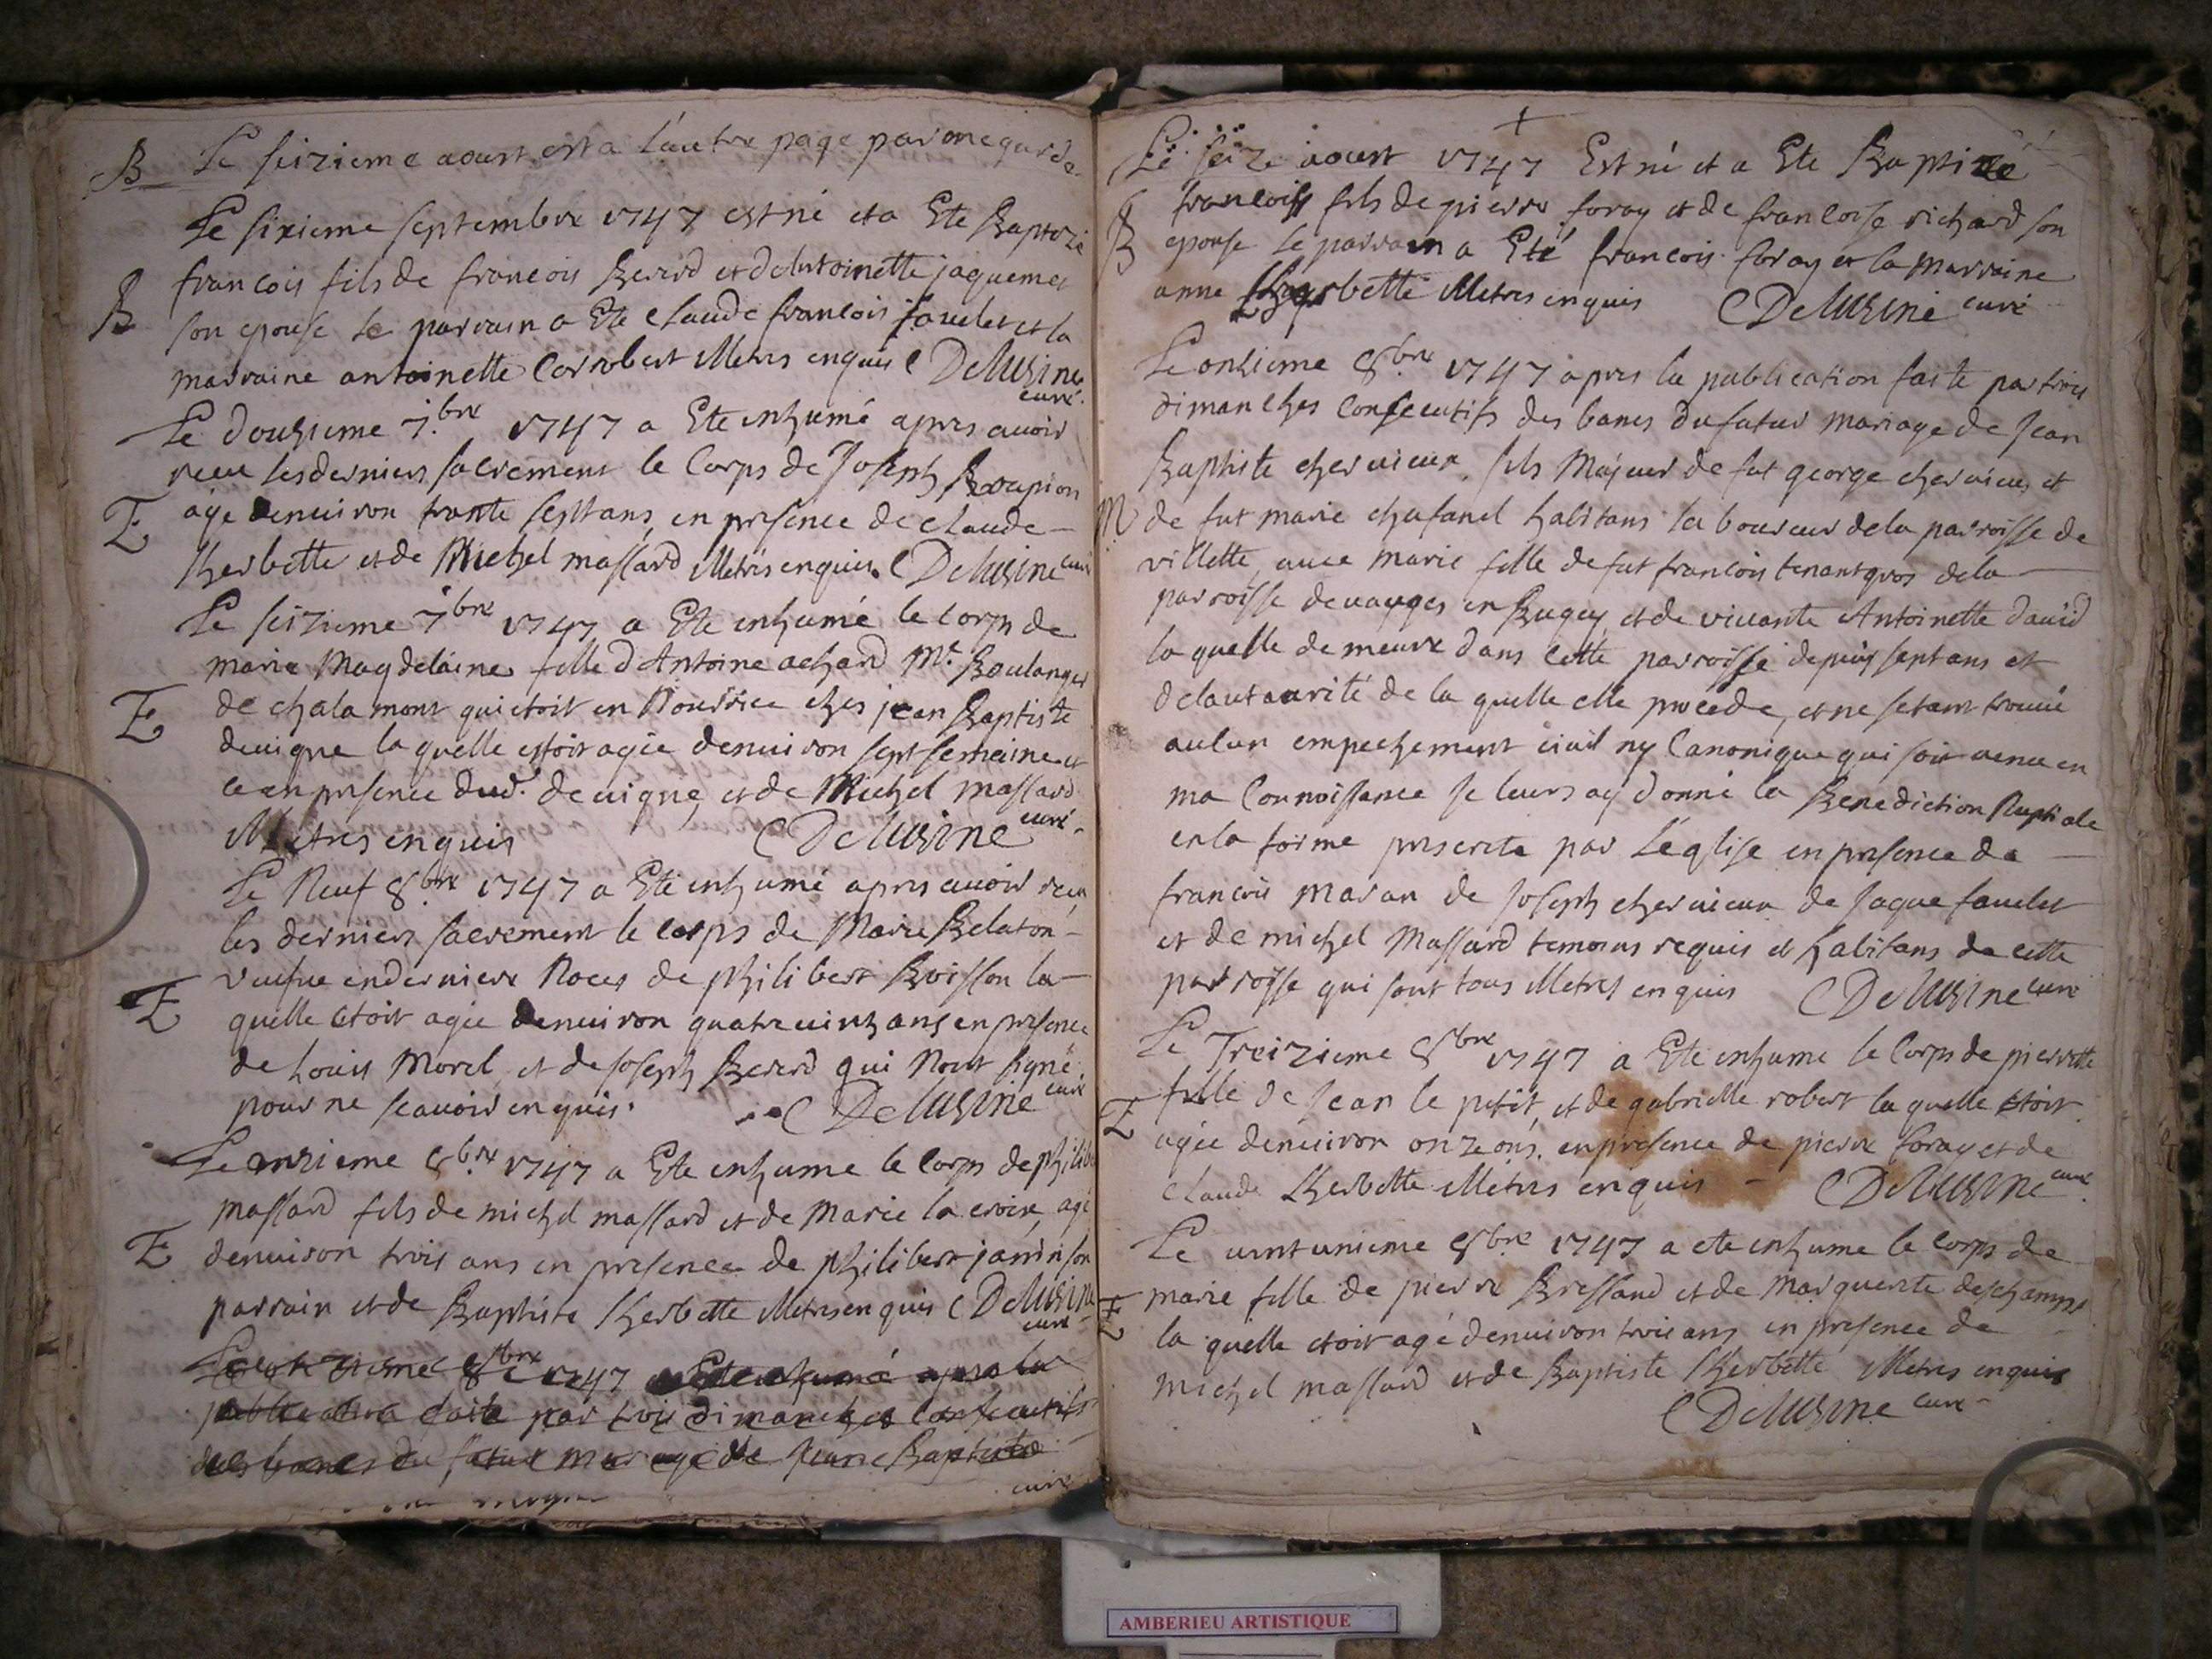 B Le seizieme aoust est a l'autre page par megarde
Le sixieme septembre 1747 est né et a Ete Baptizé
francois fils de francois Berard et dAntoinette jaquemet
B son epouse le parrain a Ete claude francois fauclet et la
marraine antoinette Corrobert illetrés enquis C Delusine
curé.
Le dousieme 7.bre 1747 a Ete inhumé apres auoir
receu les derniers sacrement le Corps de Joseph
E agé denuiron trante sept ans, en presence de claude
Therbette et de Michel massard illetrés enquis. C Delusine curé
Le seizieme 7bre 1747 a Ete inhumé le Corps de
marie Magdelaine fille d'Antoine achard Mt. Boulanger
E de chalamont qui etoit en Nourrice ches jean Baptiste
deuigne la quelle estoit agée denuiron sept semaine et
ce en presence dud. deuigne, et de Michel massard
illetrés enquis C Delusine curé
Le Neuf 8.bre 1747 a Eté inhumé apres auoir receu
les derniers sacrement le corps de Marie Belaton
veufue en derniere Noces de philibert Buisson la
E quelle etoit agée denuiron quatre uints ans en presence
de Louis Morel, et de Joseph Berard qui Nont signé
pour ne scauoir enquis. C Delusine curé
Le onzieme 8b.re 1747 a Ete inhume le Corps de philib
massard fils de michel massard et de Marie la croix, agé
E denuiron trois ans en presence de philibert janin son
parrain et de Baptiste Therbette illetres enquis C Delusine
curé
Le onzieme 8bre 1747 a Ete inhumé apres la
publication faite par trois dimanches consecutifs
des bancs du futur mariage de Jean Baptiste
curé
Le seize aoust 1747 Est né et a Ete Baptizé
francois fils de pierre foray et de francoise richard son
B epouse le parrain a Eté francois foray et la marraine
anne Therbette illetres enquis C Delusine curé
Le onzieme 8.bre 1747 apres la publication faite par trois
dimanches Consecutifs des bancs du futur mariage de Jean
Baptiste cheruieux fils Majeur de fut george cheruieux et
M de fut marie chafanel habitans laboureur de la parroisse de
villette, auec marie fille de fut francois tenant gros de la
parroisse de uauges en Bugey et de viuante Antoinette dauid
la quelle demeure dans cette parroisse depuis sept ans et
de lautaurité de la quelle elle procede, et ne setant trouué
aucun empechement ciuil ny Canonique qui soit uenu en
ma Connoissance Je leurs ay donné la Benediction Nuptiale
en la forme prescrite par L'église en presence de
francois maran de Joseph cheruieux de Jaque fauclet
et de michel Massard temoins requis et habitans de cette
parroisse qui sont tous illetres enquis C Delusine curé
Le Treizieme 8bre 1747 a Ete inhume le Corps de pierrette
fille de Jean le petit, et de gabrielle robert la quelle etoit
E agée denuiron onze ans, en presence de pierre foray et de
claude Therbette illetres enquis C Delusine curé
Le uint unieme 8bre 1747 a ete inhume le corps de
marie fille de pierre Bressand et de Marguerite deschamps
E la quelle etoit agé denuiron trois ans en presence de
michel massard et de Baptiste Therbette illetres enquis
C Delusine curé
AMBERIEU ARTISTIQUE